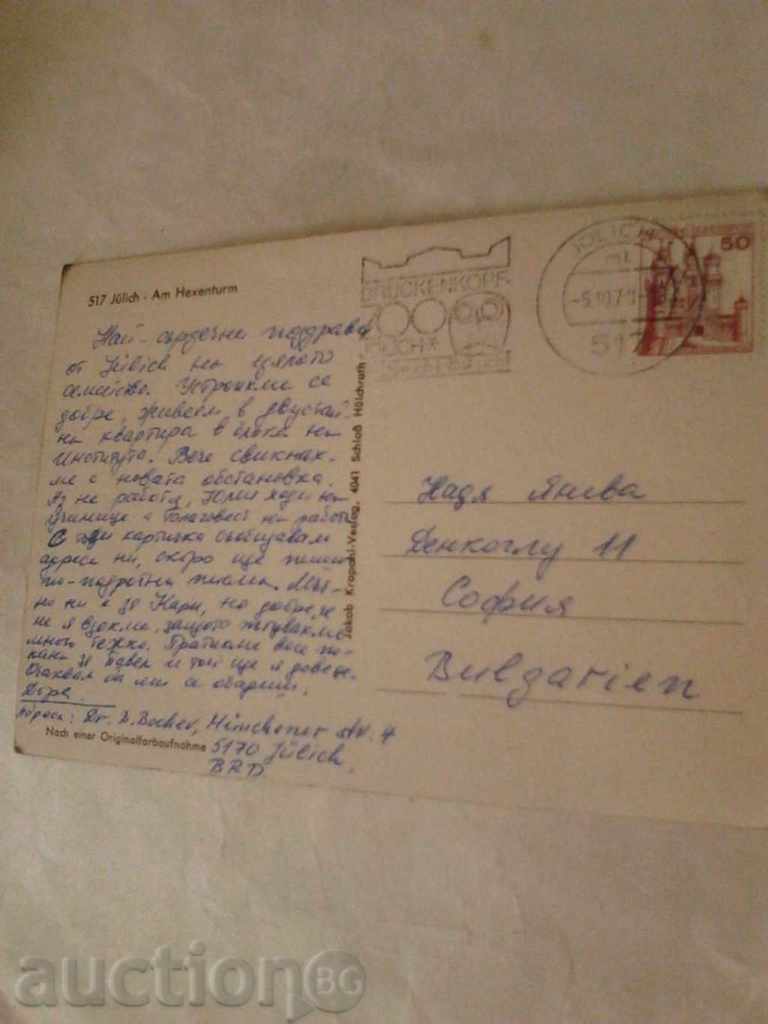 517 Jülich - Am Hexenturm
Най-сърдечни поздрави
от Jülich на цялото
семейство. Устроихме се
добре, живеем в двустай-
на квартира в блока на
института. Вече свикнах-
ме с новата обстановка.
Аз не работя, Юлия ходи на
училище а на работа
С тази картичка съобщавам
адреса ни, скоро ще пиша
по-подробни писма. Мъч-
но ни е за но добре, че
не я взехме, защото пътувахме
много тежко. Пратихме вече по-
кана за Павел и той ще я доведе.
Очаквам да ми се обадиш.
Адрес: Dr. B. Münchener str. 4
5170 Jülich
BRD
Nach einer Originalfarbaufnahme
Jakob Krapohl-Verlag, 4041 Schloß Hülchrath
BRÜCKENKOPF
JÜLICH
517
50
Надя Янева
Денкоглу 11
София
Bulgarien
auction BG